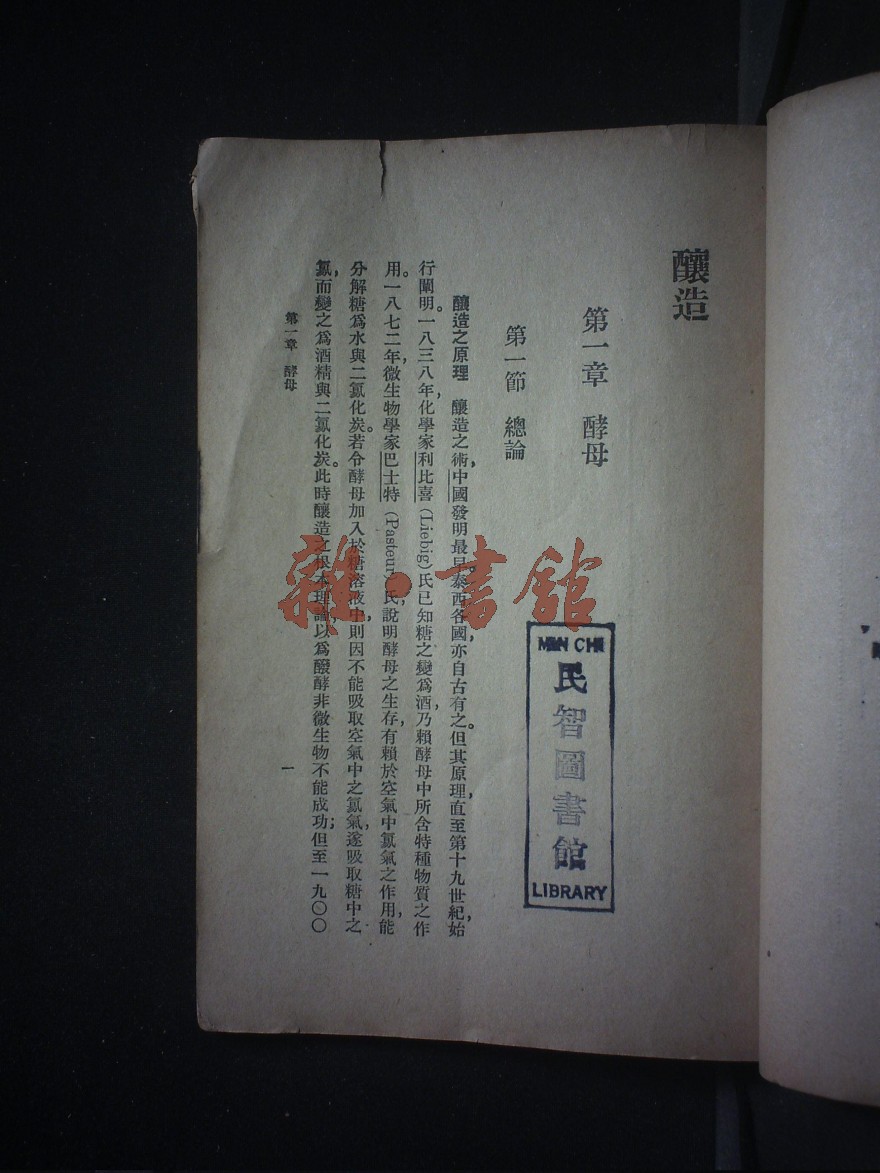 釀造
第一章 酵母
第一節 總論
釀造之原理 釀造之術,中國發明最早。泰西各國,亦自古有之。但其原理,直至第十九世紀,始
行闡明。一八三八年,化學家利比喜(Liebig)氏已知糖之變爲酒,乃賴酵母中所含特種物質之作
用。一八七二年,微生物學家巴士特(Pasteur)氏,說明酵母之生存,有賴於空氣中氯氣之作用,能
分解糖爲水與二氯化炭。若令酵母加入於糖溶液中,則因不能吸取空氣中之氯氣,遂吸取糖中之
氯,而變之爲酒精與二氯化炭。此時釀造之根本理論,以爲醱酵非微生物不能成功;但至一九〇〇
第一章 酵母
一
MIN CHI
民智圖書館
LIBRARY
雜·書館